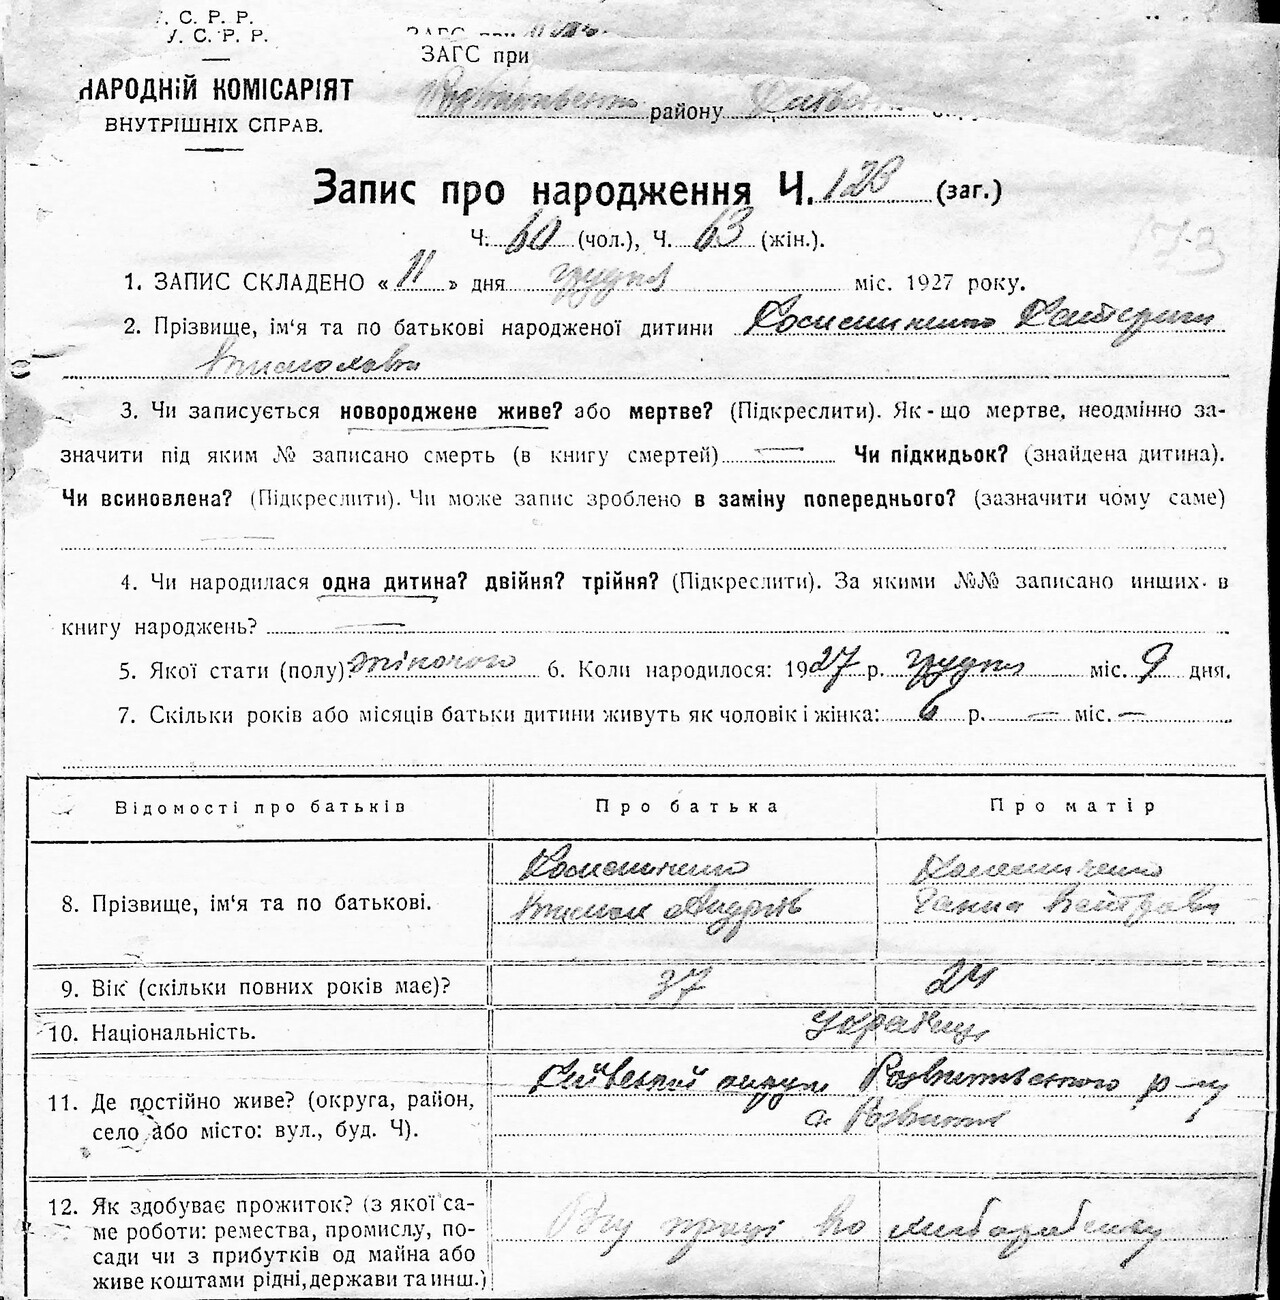 . С. Р. Р.
У. С. Р. Р.
ЗАГС при
НАРОДНІЙ КОМІСАРІЯТ
ВНУТРІШНІХ СПРАВ.
району
Запис про народження Ч. 128 (заг.)
Ч. 60 (чол.), Ч. 63 (жін.).
73
1. ЗАПИС СКЛАДЕНО « 11 » дня грудня міс. 1927 року.
2. Прізвище, ім‘я та по батькові народженої дитини Катерина
3. Чи записується новороджене живе? або мертве? (Підкреслити). Як-що мертве, неодмінно за-
значити під яким № записано смерть (в книгу смертей) — Чи підкидьок? (знайдена дитина).
Чи всиновлена? (Підкреслити). Чи може запис зроблено в заміну попереднього? (зазначити чому саме)
—
4. Чи народилася одна дитина? двійня? трійня? (Підкреслити). За якими №№ записано инших в
книгу народжень? —
5. Якої стати (полу)? жіночого 6. Коли народилося: 1927 р. грудня міс. 9 дня.
7. Скільки років або місяців батьки дитини живуть як чоловік і жінка: 6 р. — міс. —
Відомості про батьків Про батька Про матір
8. Прізвище, ім‘я та по батькові. Андріїв Ганна
9. Вік (скільки повних років має)? 37 24
10. Національність. Українці
11. Де постійно живе? (округа, район,
село або місто: вул., буд. Ч). округи р-ну
с.
12. Як здобуває прожиток? (з якої са-
ме роботи: ремества, промислу, по-
сади чи з прибутків од майна або
живе коштами рідні, держави та инш.) праці по хліборобству